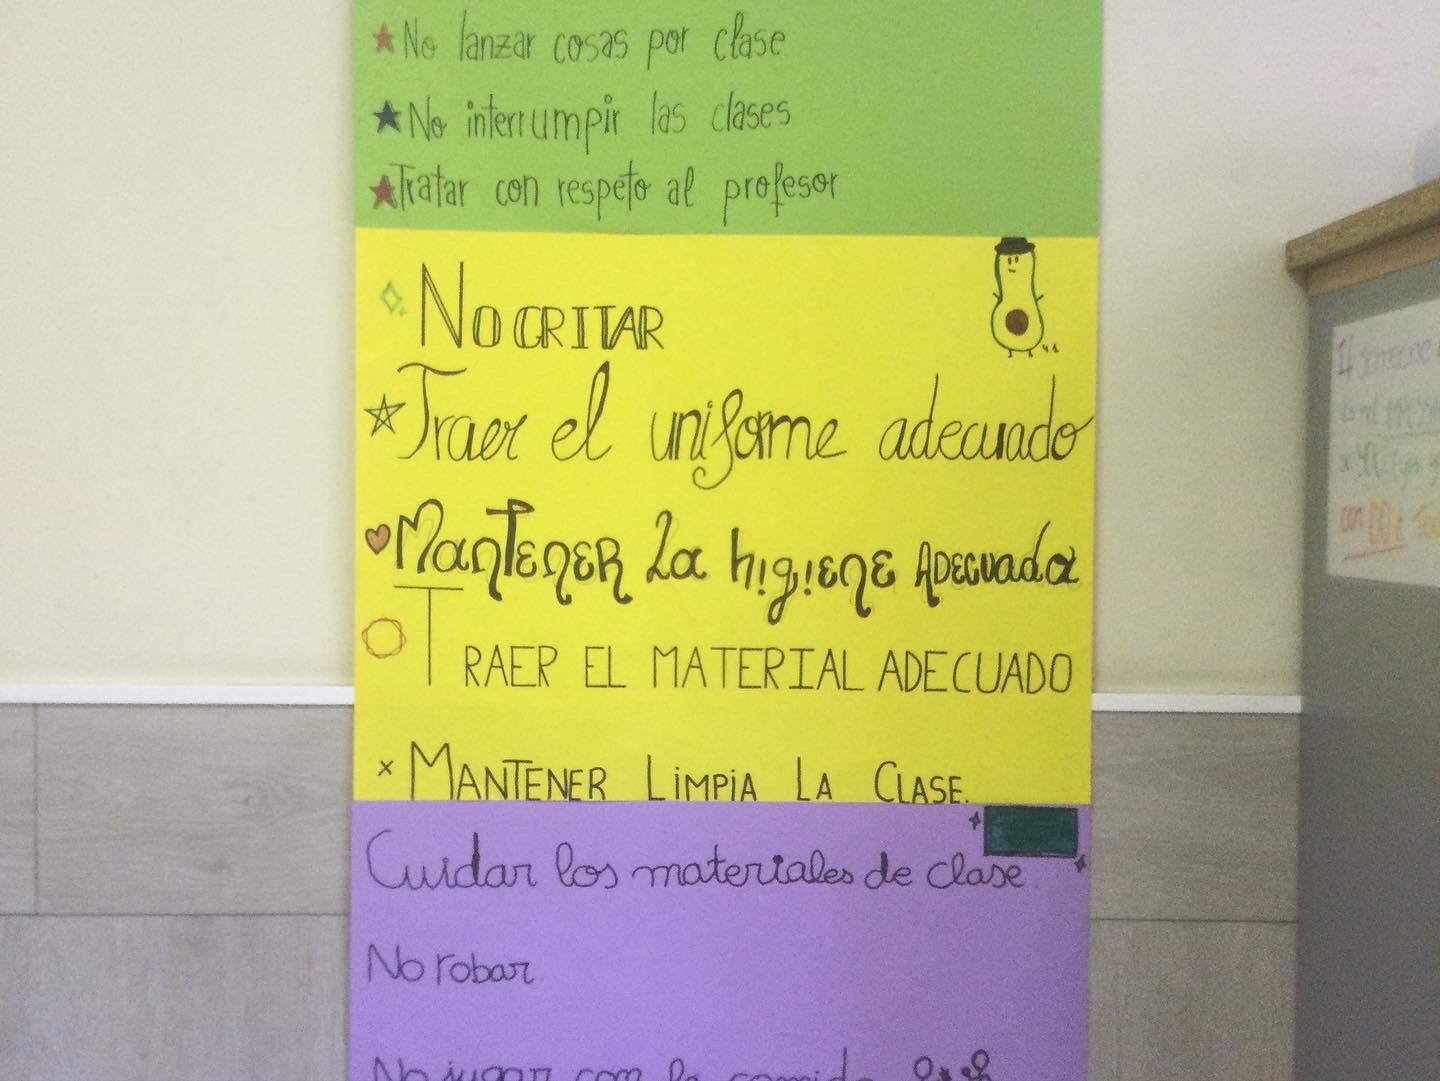 No lanzar cosas por clase
No interrumpir las clases
Tratar con respeto al profesor
NO GRITAR
Traer el uniforme adecuado
MANTENER La higiene ADECUADA
TRAER EL MATERIAL ADECUADO
× MANTENER LiMPiA LA CLASE.
Cuidar los materiales de clase
No robar
No jugar con la comida